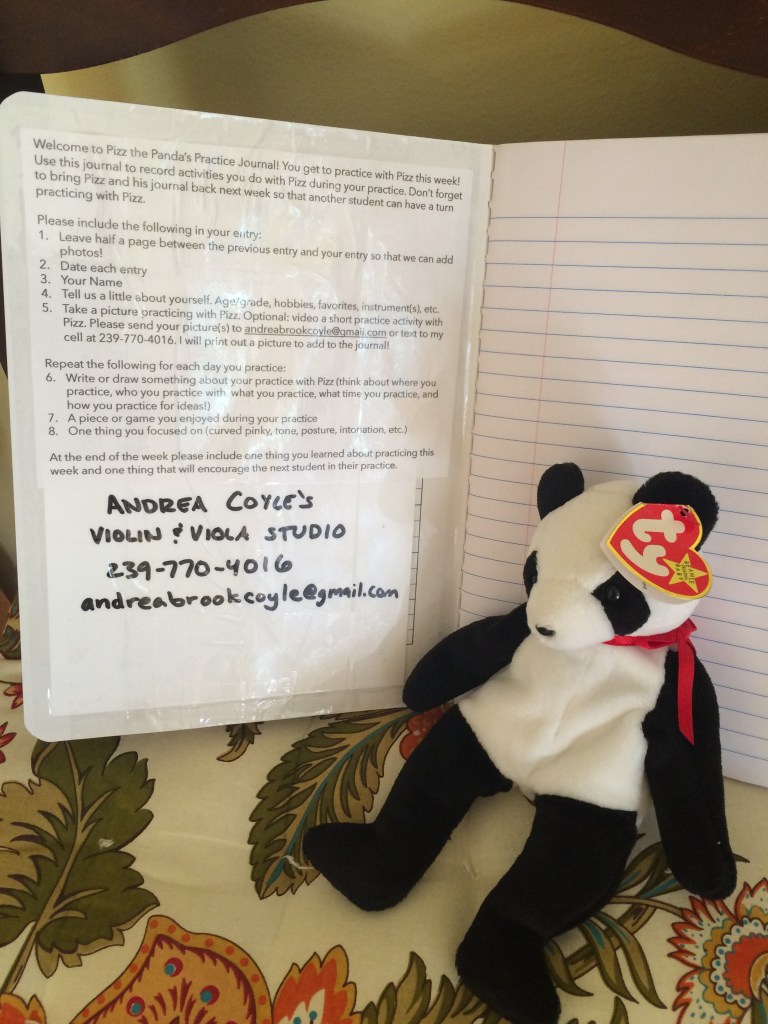 Welcome to Pizz the Panda's Practice Journal! You get to practice with Pizz this week!
Use this journal to record activities you do with Pizz during your practice. Don't forget
to bring Pizz and his journal back next week so that another student can have a turn
practicing with Pizz.
Please include the following in your entry:
1. Leave half a page between the previous entry and your entry so that we can add
photos!
2. Date each entry
3. Your Name
4. Tell us a little about yourself. Age/grade, hobbies, favorites, instrument(s), etc.
5. Take a picture practicing with Pizz. Optional: video a short practice activity with
Pizz. Please send your picture(s) to andreabrookcoyle@gmail.com or text to my
cell at 239-770-4016. I will print out a picture to add to the journal!
Repeat the following for each day you practice:
6. Write or draw something about your practice with Pizz (think about where you
practice, who you practice with, what you practice, what time you practice, and
how you practice for ideas!)
7. A piece or game you enjoyed during your practice
8. One thing you focused on (curved pinky, tone, posture, intonation, etc.)
At the end of the week please include one thing you learned about practicing this
week and one thing that will encourage the next student in their practice.
ANDREA COYLE'S
VIOLIN & VIOLA STUDIO
239-770-4016
andreabrookcoyle@gmail.com
ty
BEANIE
BABY